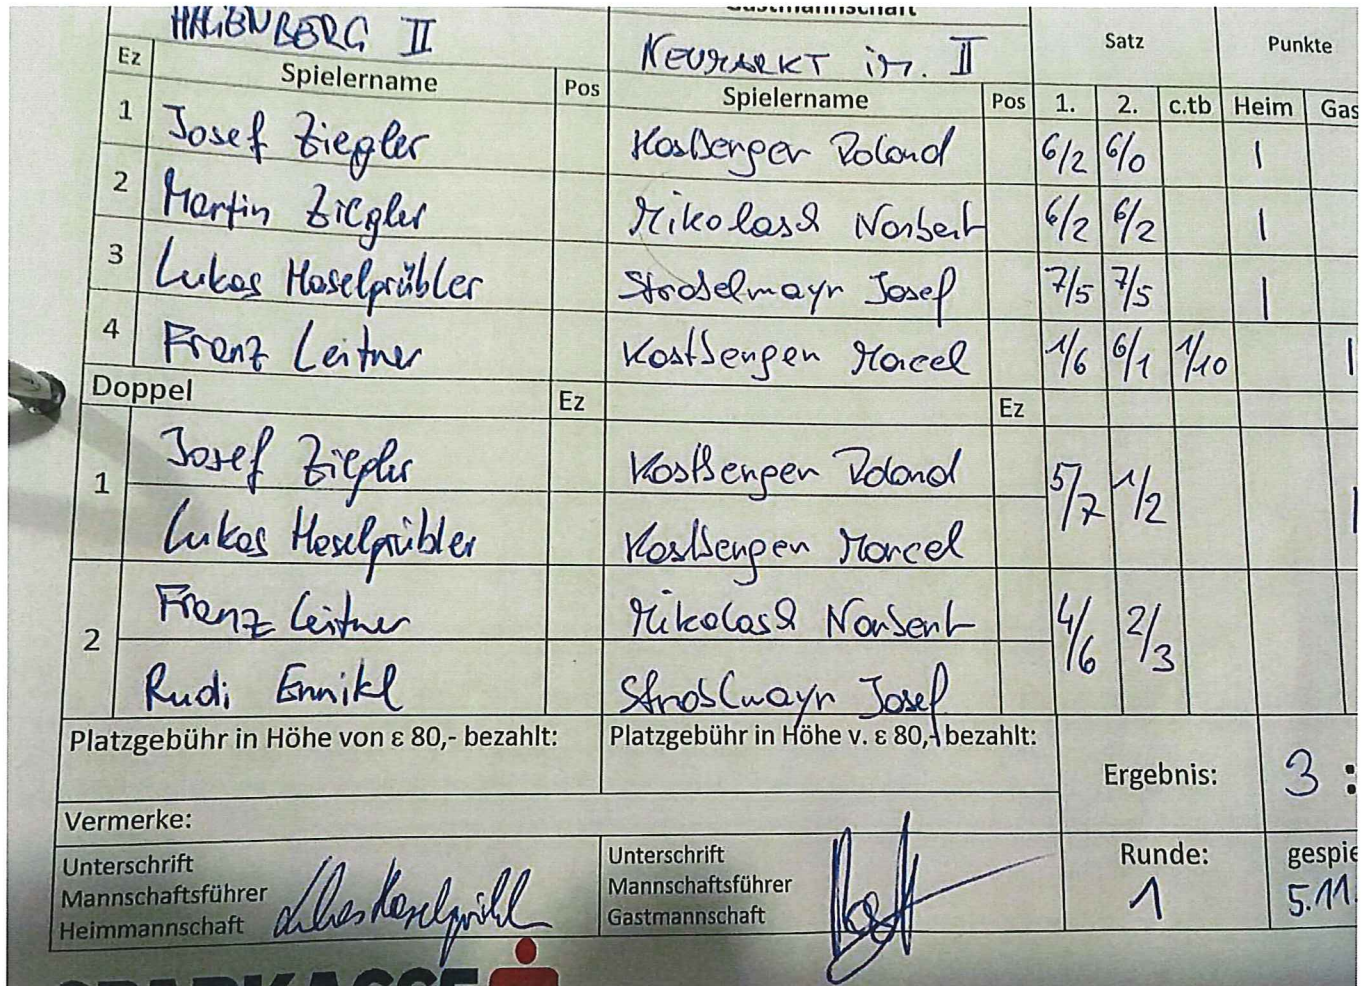 HAGENBERG II
NEUMARKT im. II
Satz
Punkte
Ez
Spielername
Pos
Spielername
Pos
1.
2.
c.tb
Heim
Gas
1 Josef Ziegler Kostberger Roland 6/2 6/0 1
2 Martin Ziegler Mikolasch Norbert 6/2 6/2 1
3 Lukas Haselgrübler Stroblmayr Josef 7/5 7/5 1
4 Franz Leitner Kostberger Marcel 1/6 6/1 1/10 1
Doppel Ez Ez
1 Josef Ziegler Kostberger Roland 5/7 1/2 1
Lukas Haselgrübler Kostberger Marcel
2 Franz Leitner Mikolasch Norbert 4/6 2/3
Rudi Ennikl Stroblmayr Josef
Platzgebühr in Höhe von ε 80,- bezahlt:
Platzgebühr in Höhe v. ε 80,- bezahlt:
Ergebnis: 3 :
Vermerke:
Unterschrift
Mannschaftsführer
Heimmannschaft
Unterschrift
Mannschaftsführer
Gastmannschaft
Runde:
1
gespie
5.11.